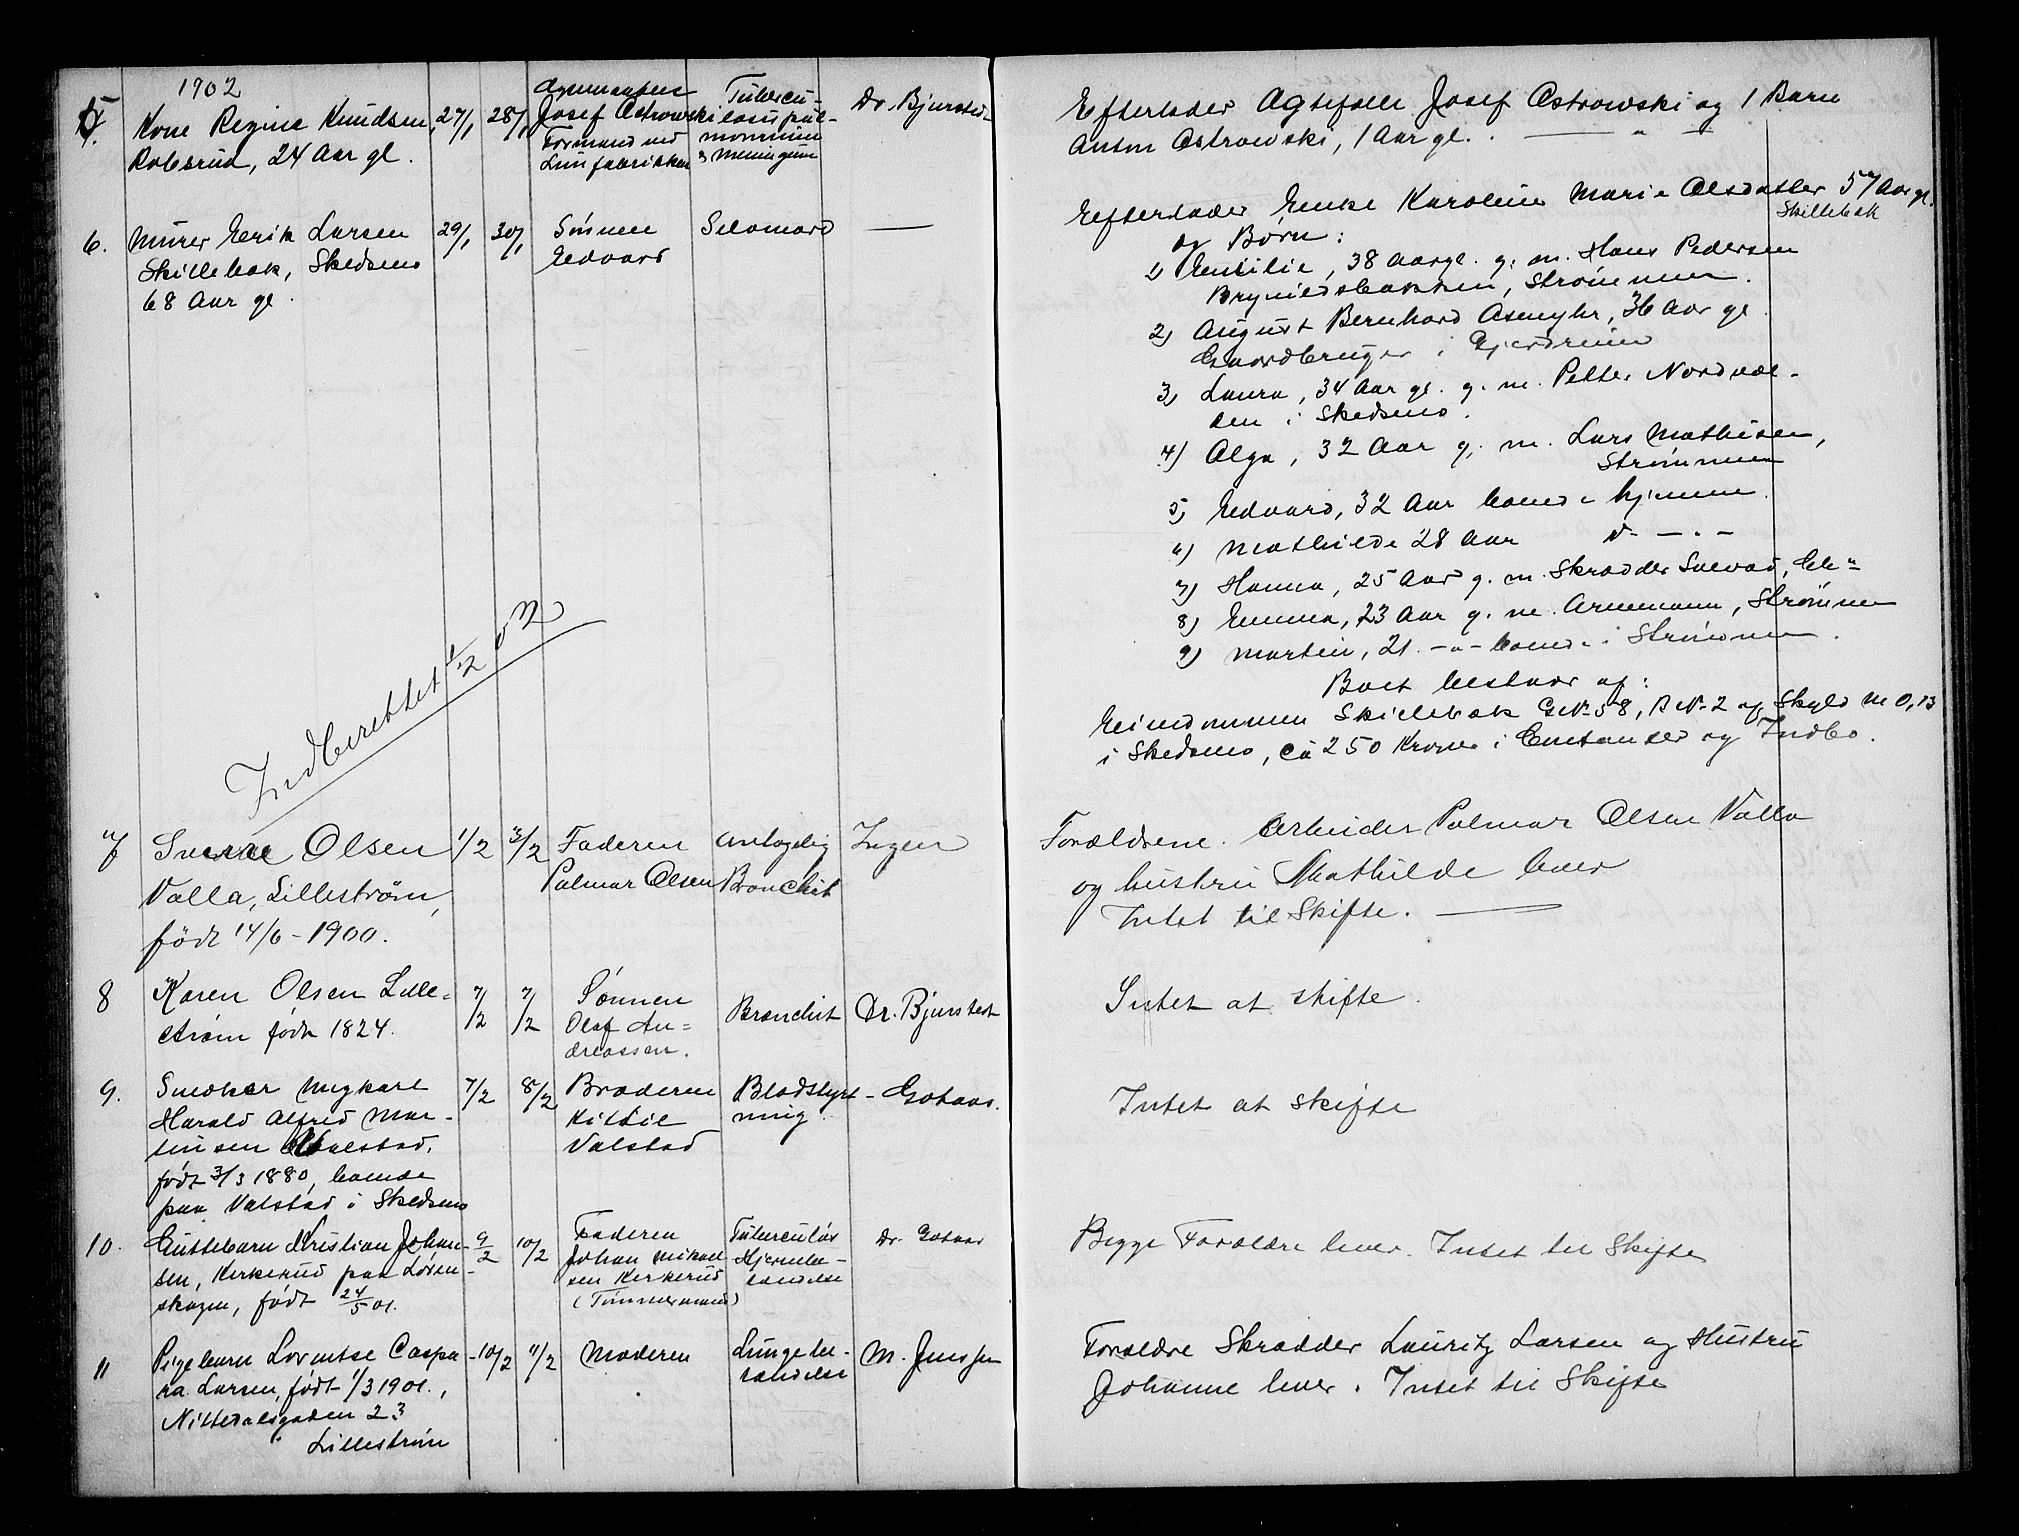 1902
5. Kone Regine Knudsen, 27/1 28/1 Ægtemanden Josef Ostrowski Tubercu- Dr. Bjurstedt
Robsrud, 24 Aar gl. Formand ved Limfabrikken losis pul-monum & meningum
Efterlader Ægtefælle Josef Ostrowski og 1 Barn
Anton Ostrowski, 1 Aar gl.
6. Murer Erik Larsen 29/1 30/1 Sønnen Selvmord —
Skillebæk, Skedsmo Edvard
68 Aar gl.
Efterlader Enke Karoline Marie Olsdatter 57 Aar gl.
Skillebæk
og Børn:
1) Emilie, 38 Aar gl. g. m. Hans Pedersen
Brynildsbakken, Strømmen.
2) August Bernhard Asmyhr, 36 Aar gl
Gaardbruger i Gjerdrum
3) Laura, 34 Aar gl. g. m. Petter Nordvol-
den i Skedsmo.
4) Olga, 32 Aar g. m. Lars Mathisen,
Strømmen
5) Edvard, 32 Aar boende hjemme.
6) Mathilde 28 Aar
7) Hanna, 25 Aar g. m. Skrædder
8) Emma, 23 Aar g. m. Arnemann, Strømmen
9) Martin, 21 -"- boende i Strømmen.
Boet bestaar af:
Eiendommen Skillebæk G.N. 58, B.N. 2 af Skyld M 0,13
i Skedsmo, ca 250 Kroner i Contanter og Indbo.
Indberettet 1/2 02
7 Sverre Olsen 1/2 3/2 Faderen antagelig Ingen
Valla, Lillestrøm, Palmar Olsen Bronchit
født 14/6-1900.
Forældrene Arbeider Palmar Olsen Valla
og hustru Mathilde lever
Intet til Skifte.
8 Karen Olsen Lille= 7/2 7/2 Sønnen Bronchit Dr. Bjurstedt
strøm født 1824. Olaf An=
dreassen.
Intet at skifte.
9. Snedker Ungkarl 7/2 8/2 Broderen Blodstyrt- Gotaas.
Harald Alfred Mar- Kittil ning
tinsen Valstad, Valstad
født 3/3 1880, boende
paa Valstad i Skedsmo
Intet at skifte
10. Guttebarn Kristian Johan- 9/2 10/2 Faderen Tuberculøs Dr. Gotaas
sen, Kerkerud paa Løren- Johan Mikael- Hjernebe-
skogen, født 24/5 01. sen Kerkerud tændelse
(Tømmermand)
Begge Forældre lever. Intet til Skifte
11 Pigebarn Lorentse Caspa- 10/2 11/2 Moderen Lungebe- M. Jenssen
ra Larsen, født 1/3 1901., tændelse
Nittedalsgaden 23
Lillestrøm
Forældre Skrædder Lauritz Larsen og Hustru
Johanne lever. Intet til Skifte